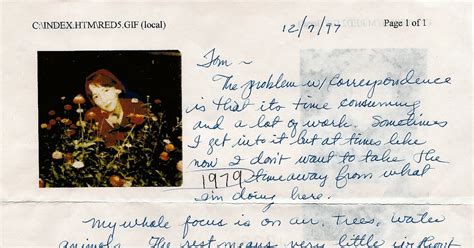 C:\INDEX.HTM\RED5.GIF (local)
12/7/97
Page 1 of 1
Tom ~
The problem w/correspondence
is that its time consuming
and a lot of work. Sometimes
I get into it but at times like
now I don't want to take the
1979 time away from what
am doing here.
My whole focus is on air, trees, water
animals. The rest means very little is Right